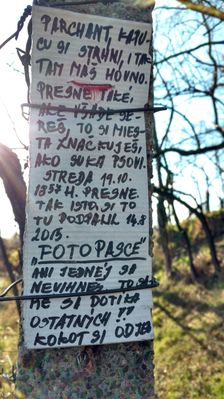 PARCHANT, KAPU-
CU SI STRHNI, I TAK
TAM MÁŠ HOVNO.
PRESNE TAKÉ,
AKÉ VŠADE SE-
REŠ, TO SI MIES-
TA ZNAČKUJEŠ,
AKO SUKA PSOVI.
STREDA 19.10.
13⁵⁴ H. PRESNE
TAK ISTO SI TO
TU PODPÁLIL 14.8
2013.
"FOTOPASCE"
ANI JEDNEJ SA
NEVIHNEŠ. TO SA
NE SI DOTÝKA
OSTATNÝCH!!
KOKOT SI